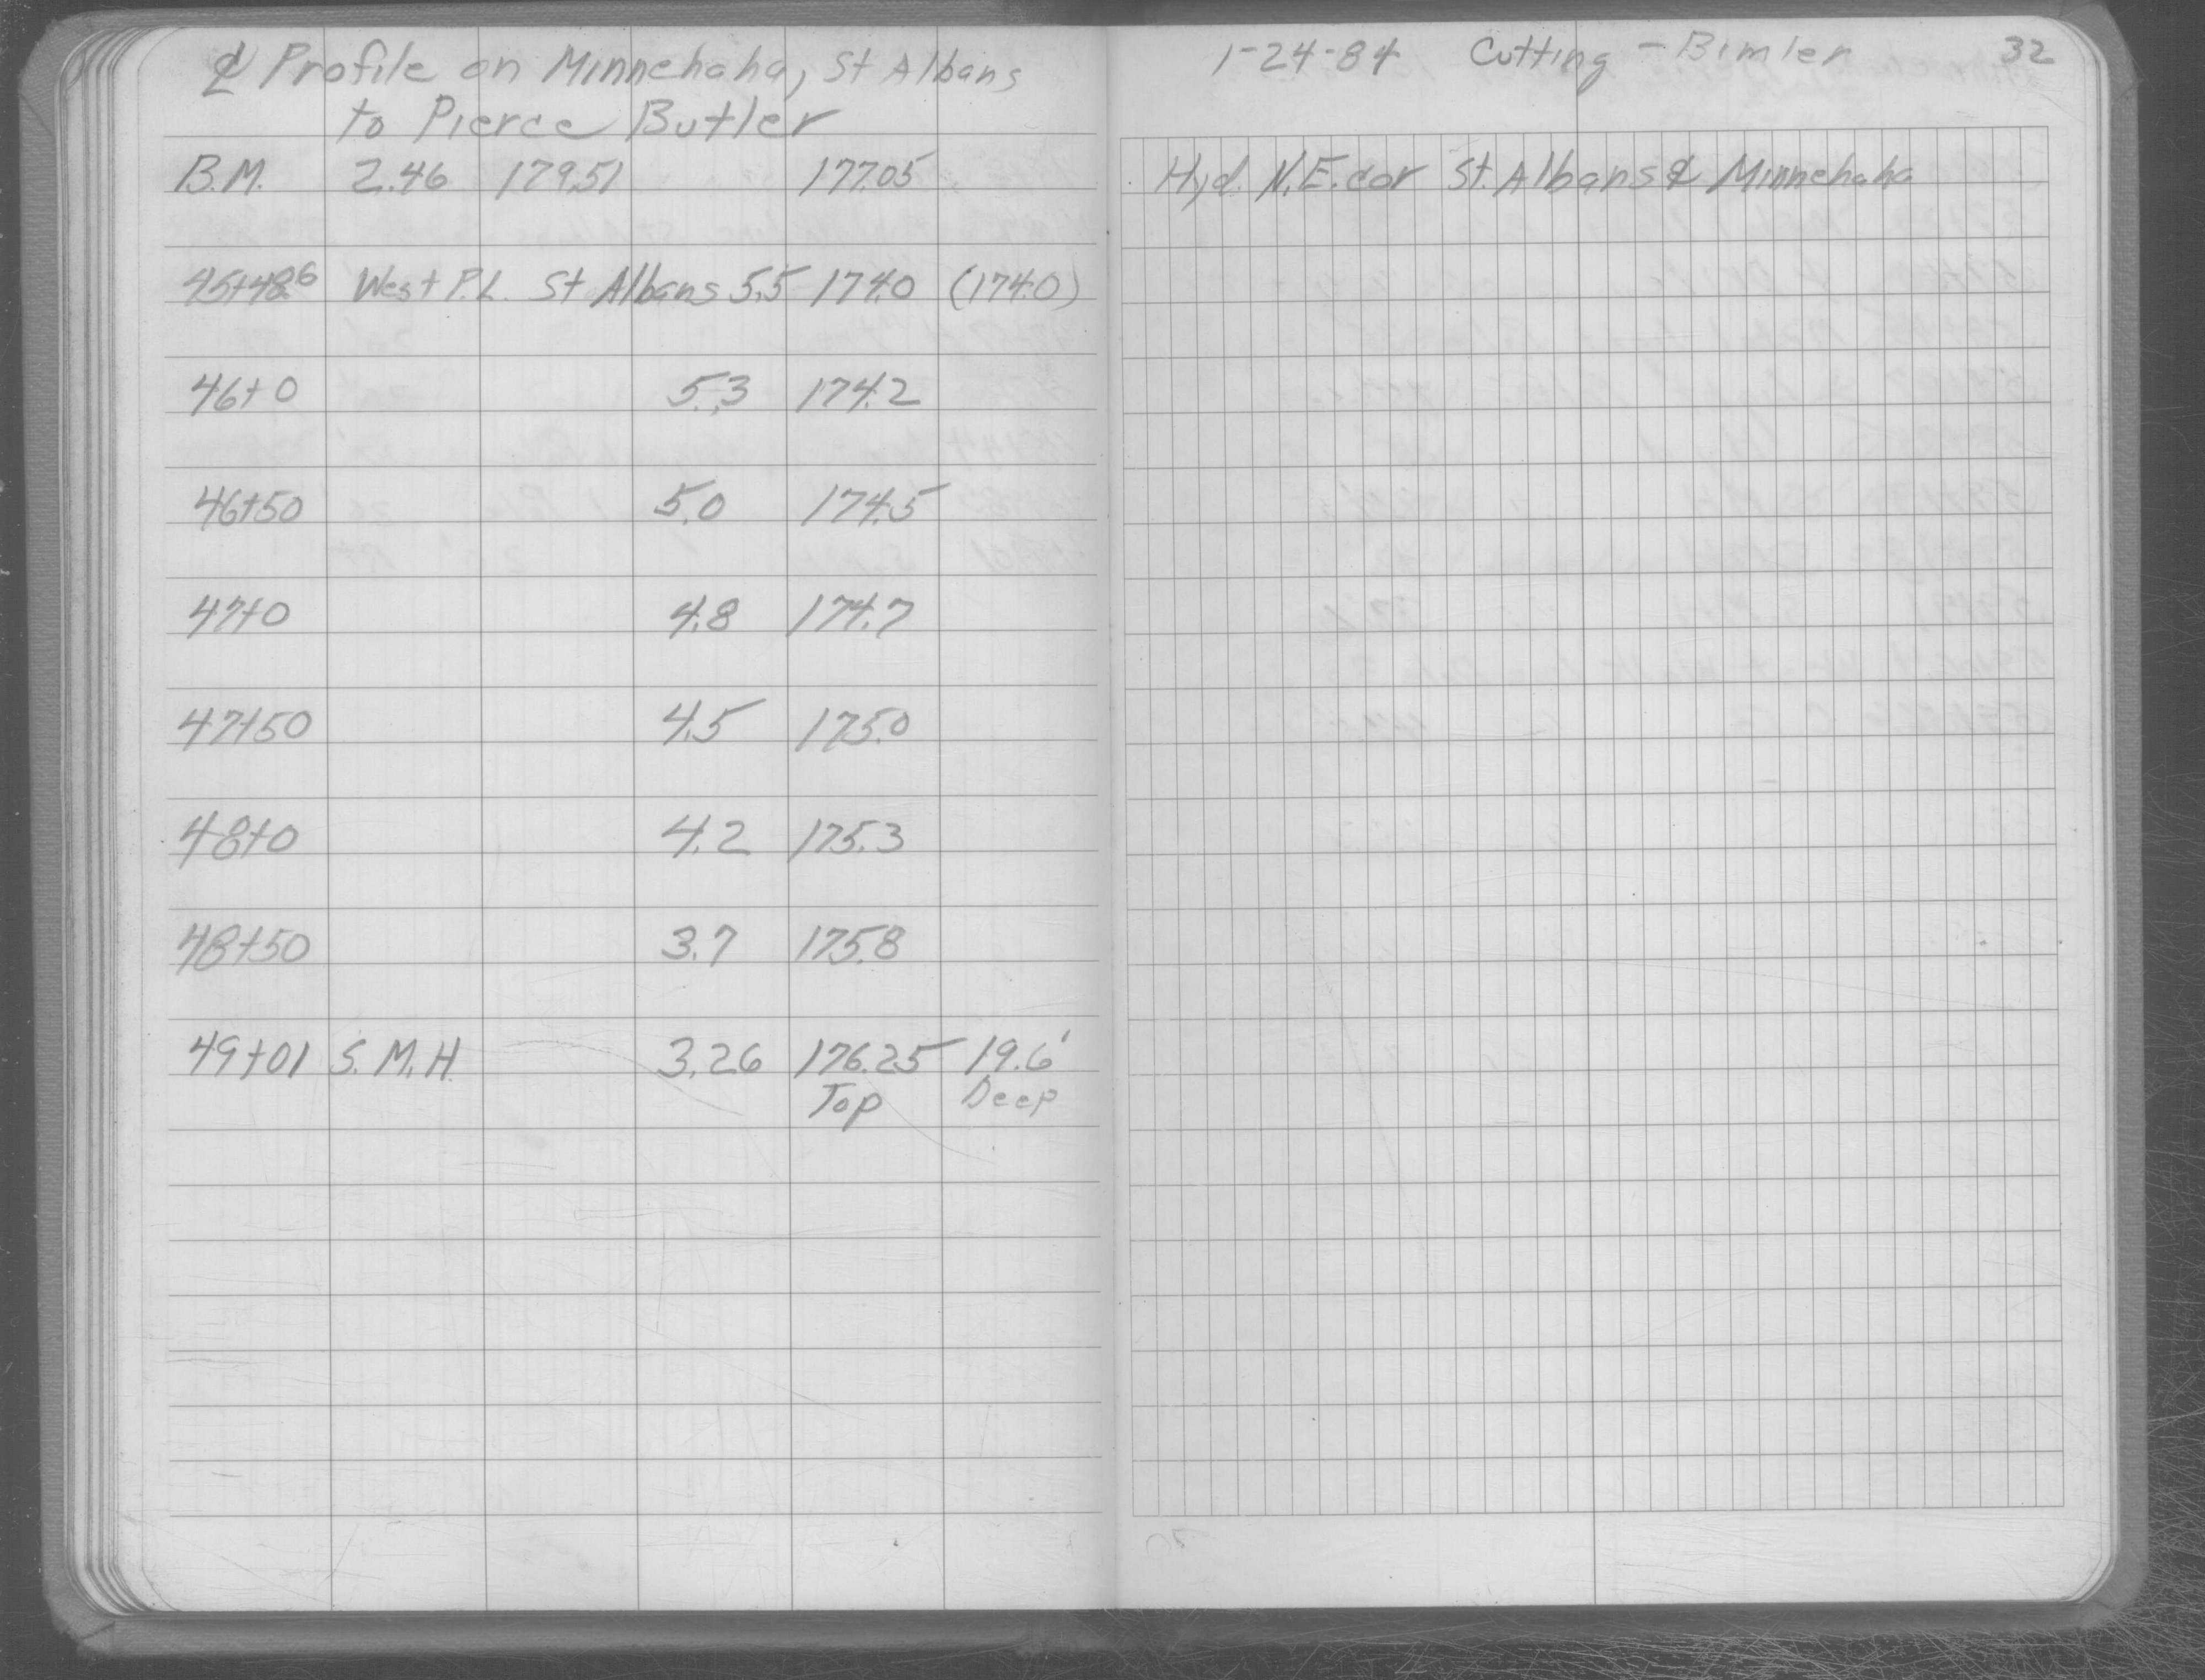 ℄ Profile on Minnehaha, St Albans
to Pierce Butler
B.M. 2.46 179.51 177.05
45+48.6 West P.L. St Albans 5.5 174.0 (174.0)
46+0 5.3 174.2
46+50 5.0 174.5
47+0 4.8 174.7
47+50 4.5 175.0
48+0 4.2 175.3
48+50 3.7 175.8
49+01 S.M.H. 3.26 176.25 19.6'
Top Deep
1-24-84 Cutting - Bimler 32
Hyd. N.E. cor St. Albans & Minnehaha